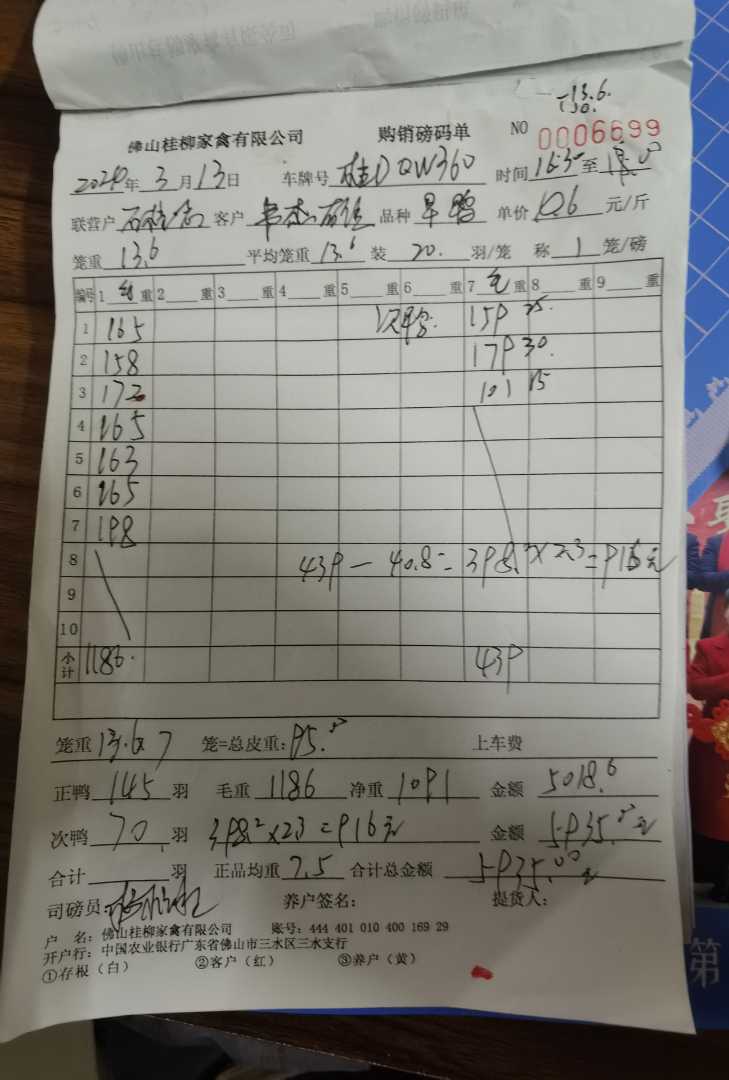 -13.6.
130.
佛山桂柳家禽有限公司 购销磅码单 NO 0006699
2024年3月13日 车牌号 桂DQW360 时间16:30至18:00
联营户 客户 品种 旱鸭 单价 元/斤
笼重 13.6 平均笼重 13.6 装 20. 羽/笼 称 1 笼/磅
编号 1 重 2 重 3 重 4 重 5 重 6 重 7 重 8 重 9 重
1 165 次鸭. 159 25.
2 158 179 30.
3 172 101 15
4 165
5 163
6 165
7 198
8 439 - 40.8 = 398.2 × 2.3 = 916元
9
10
小计 1186. 439
笼重 13.6×7 笼=总皮重: 95.2 上车费
正鸭 145 羽 毛重 1186 净重 1091 金额 5018.6
次鸭 70. 羽 398.2×2.3=916元 金额 5935.00元
合计 羽 正品均重 7.5 合计总金额 5935.00元
司磅员 养户签名: 提货人:
户 名: 佛山桂柳家禽有限公司 账号: 444 401 010 400 169 29
开户行: 中国农业银行广东省佛山市三水区三水支行
①存根（白） ②客户（红） ③养户（黄）
第